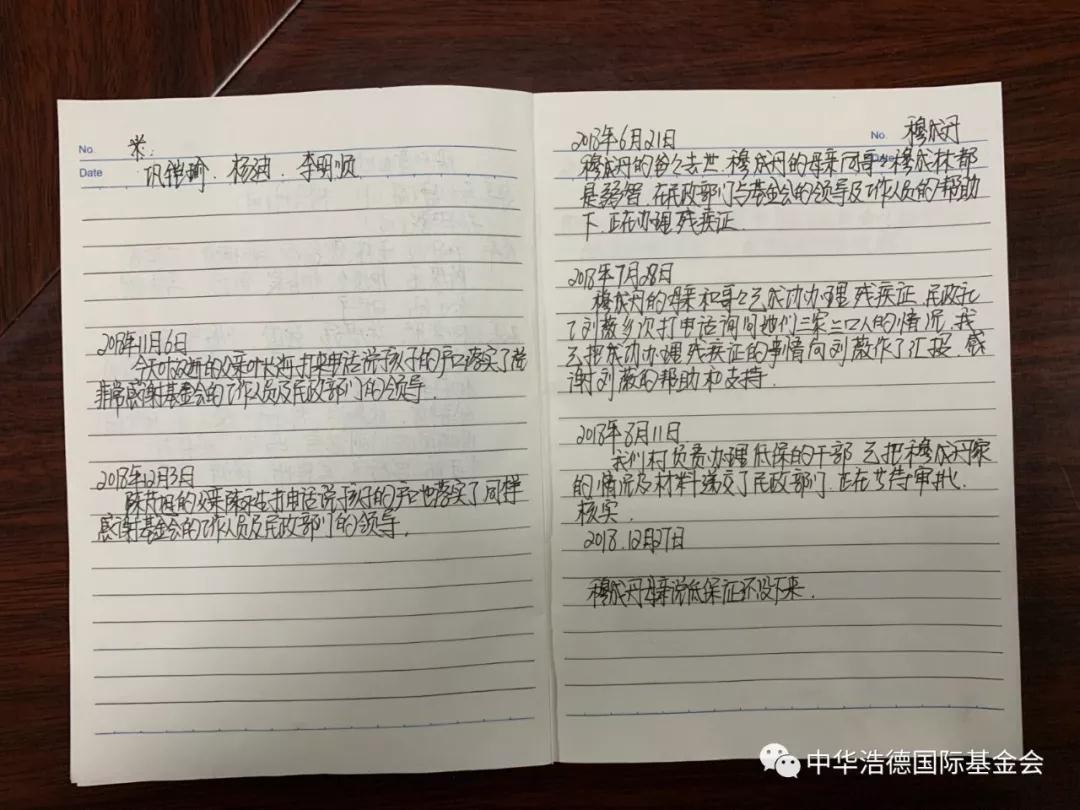 No.
Date
杨迪. 李明顺
2018年11月6日
今天叶海的父亲叶长海打来电话说孩子的户口落实了
非常感谢基金会的工作人员及民政部门的领导.
2018年12月3日
的父亲陈永生打电话说孩子的户口也落实了同样
感谢基金会的工作人员及民政部门的领导.
No.
穆成丹
2018年6月21日
穆成丹的爸々去世.穆成丹的母亲同哥々穆成林都
是弱智.在民政部门与基金会的领导及工作人员的帮助
下.正在办理残疾证.
2018年7月28日
穆成丹的母亲和哥々已成功办理残疾证.民政
刘薇多次打电话询问她们三家三口人的情况.我
已把成功办理残疾证的事情向刘薇作了汇报.感
谢刘薇的帮助和支持.
2018年8月11日
我们村负责办理低保的干部已把穆成丹家
的情况及材料递交了民政部门.正在等待审批.
核实.
2018.12月27日
穆成丹母亲说低保证还没下来.
中华浩德国际基金会